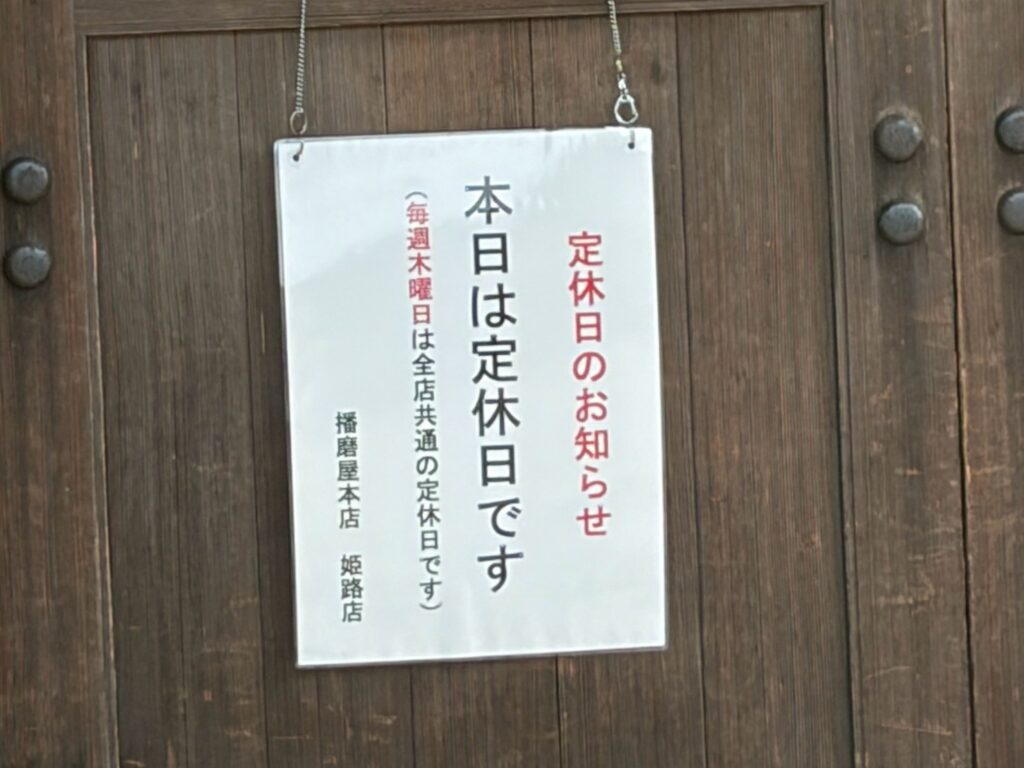 定休日のお知らせ
本日は定休日です
（毎週木曜日は全店共通の定休日です）
播磨屋本店　姫路店